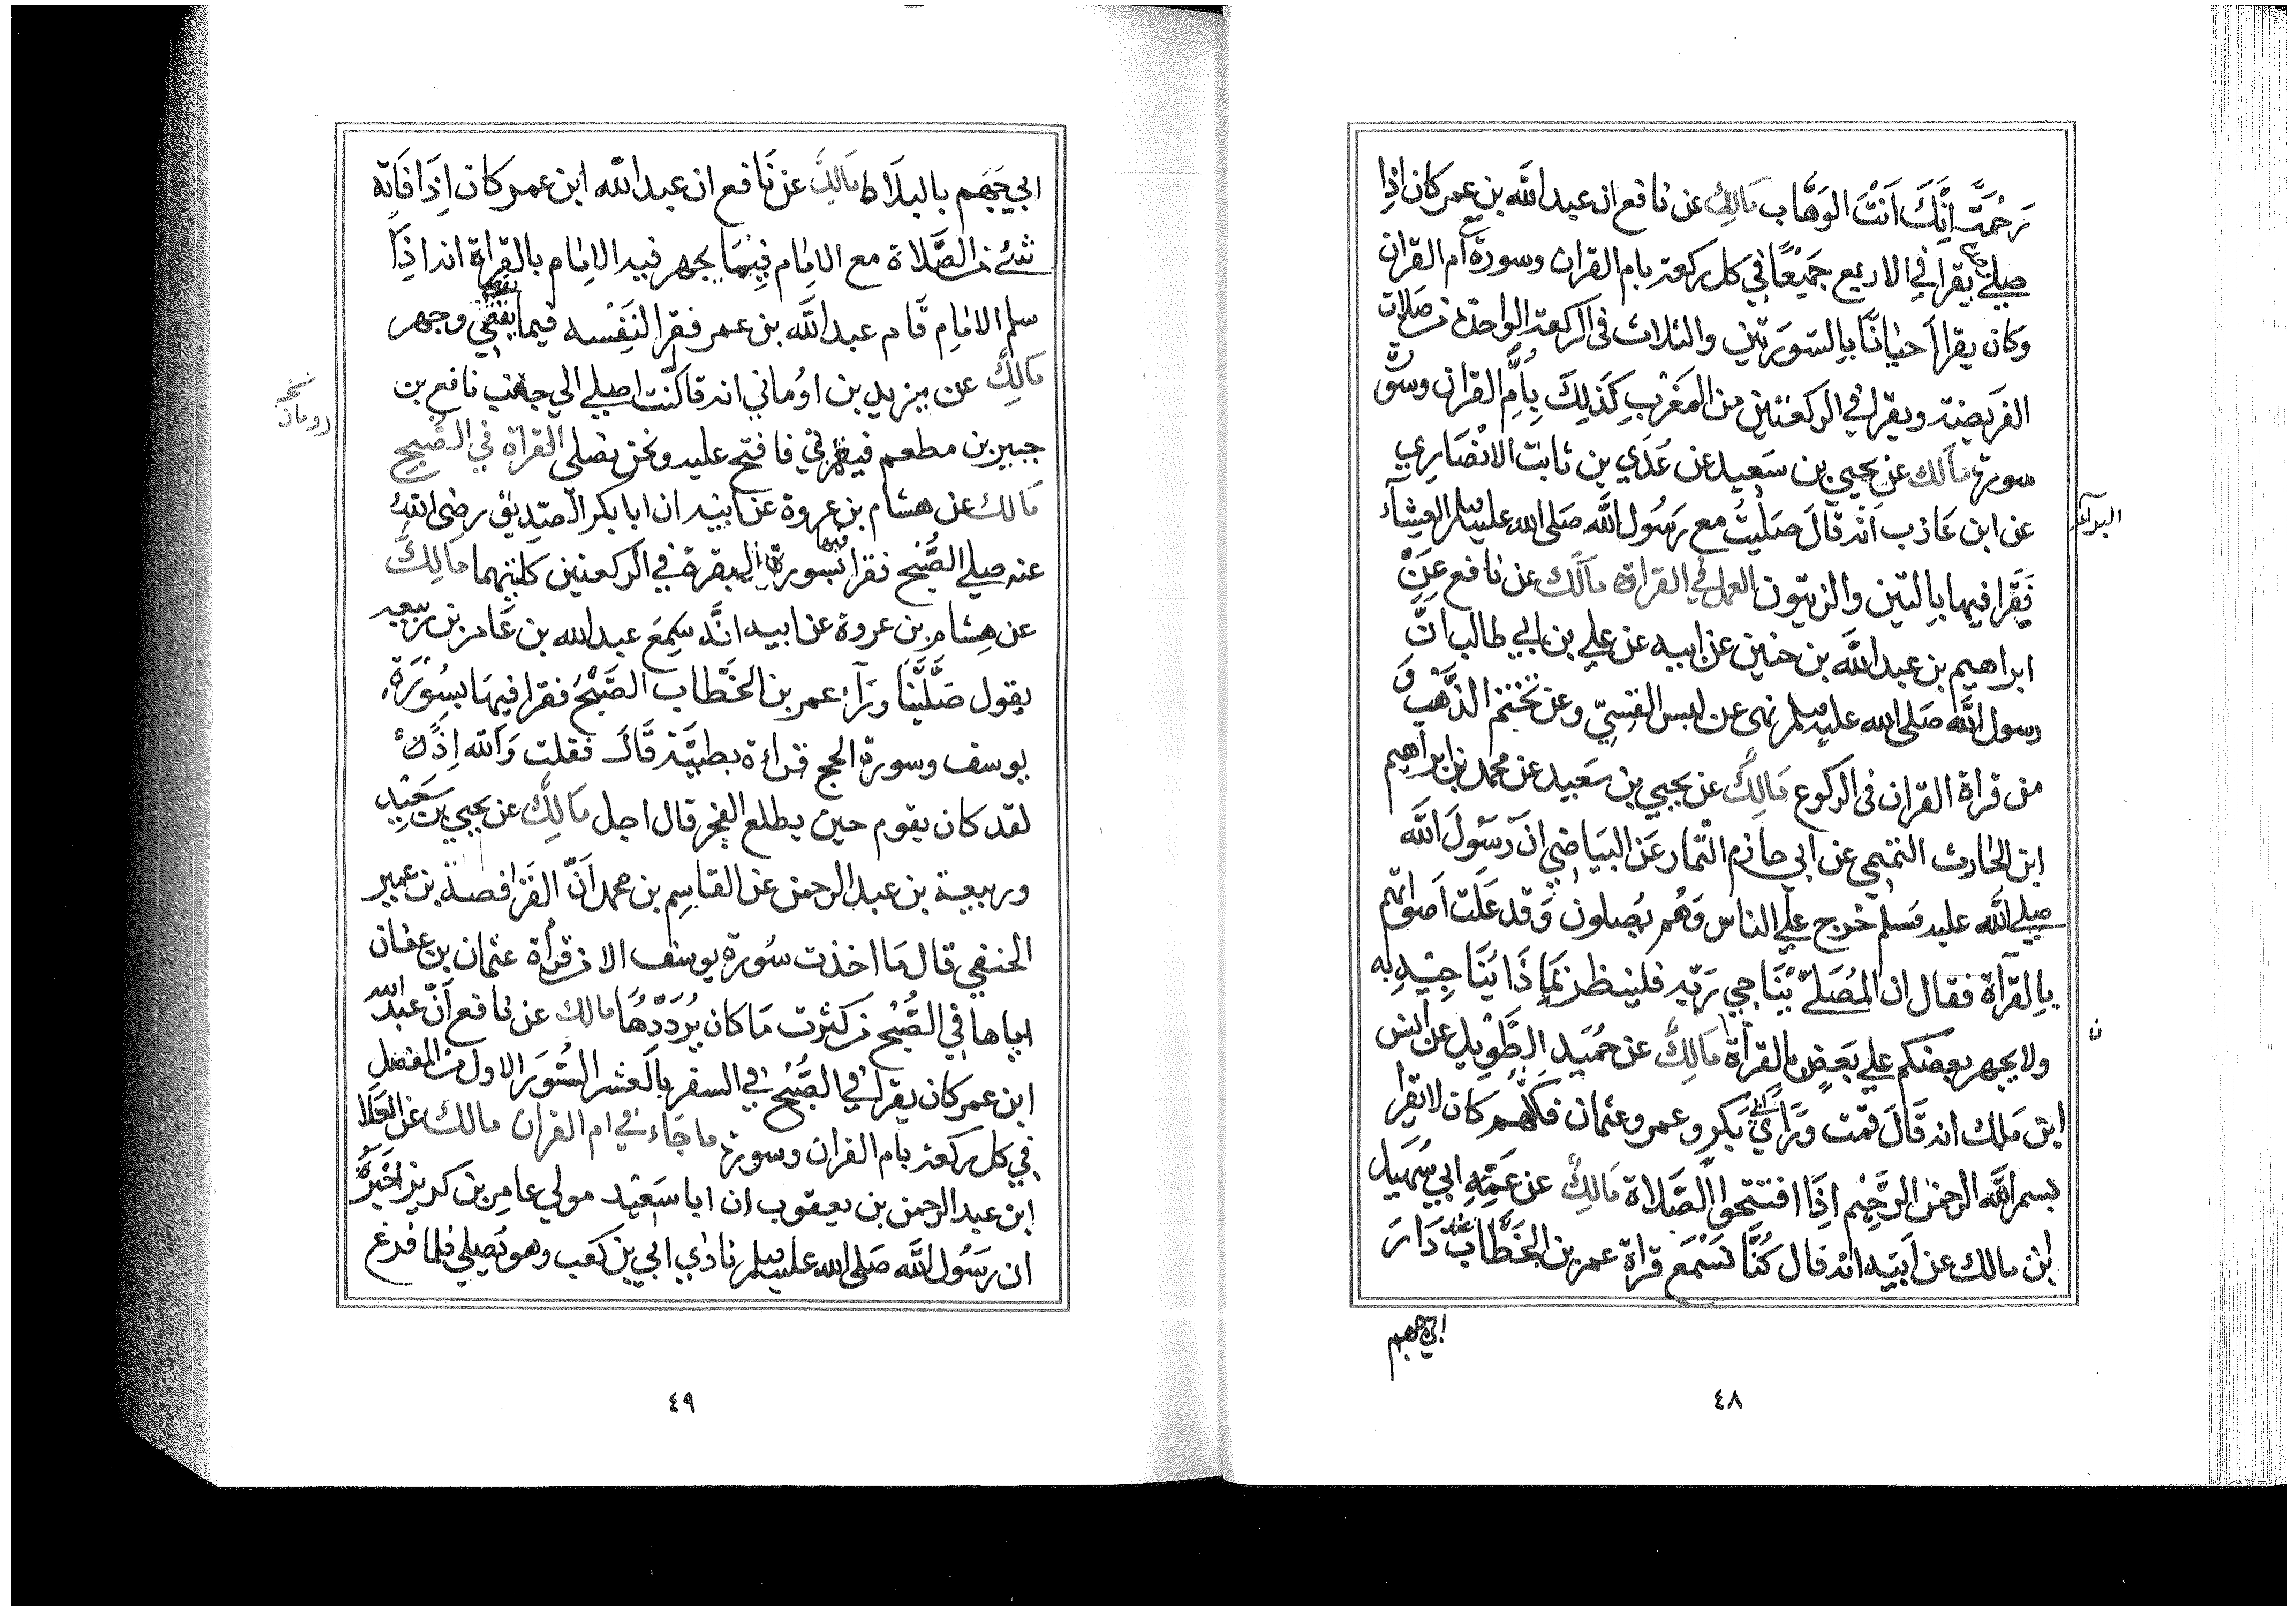 رَحْمَتَّ اِنَّكَ اَنْتَ الوَهَّاب مَالِكُ عن نافع ان عبد الله بن عمر كان اِذا
صلي يقرا في الاربع جَمِيْعًا في كل ركعة بام القران وسورة ام القران
وكان يقرا اَحيانًا بالسّورَتين والثلاث في الركعة الواحدة من صَلات
الفريضة ويقرا في الركعتين من المَغْرب كَذلِكَ بِأُمِّ القران وسورة
سورة مالك عن يحيي بن سَعِيد عن عَدَي بن ثابت الانْصَارِي
البرآء
عن ابن عَاذب اَنه قالَ صَليْتُ مع رَسُول الله صَلي الله عليه وسلم العِشآء
فَقَرا فيها بالتين والزيتون العمل في القراة مَالك عن نافع عَنْ
ابراهيم بن عبد الله بن حنين عن ابيه عن علي بن ابي طالب انّ
رسول الله صَلي الله عليه وسلم نهي عن لبس القسِيّ وعن تختم الذَّهَب وَ
من قراة القران في الركوع مَالِكُ عن يحيي بن سَعيد عن محمد بن ابراهيم
ابن الحَارث التيمي عن ابي حازم التمار عَن البيَاضي انّ رَسُولَ الله
صلي الله عليه وَسلم خرج علي الناس وَهُم يُصلون وَقد عَلَت اَصواتهم
بالقرآة فقال ان المُصَلّي يُنَاجي رَبّه فلينظر بمَا ذَا يُنَاجِيْهِ به
ن
ولا يجهر بعضكم علي بَعضٍ بالقراة مَالِكُ عن حُمَيد الطّوِيل عن انس
ابن مَلك انه قَالَ قمت وَرَآء ابي بَكرٍ وعمر وعثمان فكلّهم كان لا يقرا
بسم الله الرحمن الرّحِيْم اِذَا افتتحوا الصّلاة مَالِكُ عن عَمّهِ ابي سُهَيل
ابن مالك عن اَبيْه انه قال كُنَّا نَسْمَع قراة عمر بن الخَطّاب عند دَارَ
ابي جهم
٤٨
ابي جَهَم بالبلَاط مَالِكُ عن نَافع ان عبد الله ابن عمر كان اِذَا فَاتَه
شئ من الصَّلاة مع الامَام فِيْمَا يجهر فيه الامَام بالقِراة انه اذَا
سلم الامَام قَام عبد الله بن عمر فقرا لنَفْسه فيما يقضي وجهر
مَالِكُ عن يزيد بن اوُماني انه قال كنت اصلي الي جانب نافع بن
نخـ رومان
جبير بن مطعم فيغمزني فافتح عليه ونحن نصلي القراة في الصّبح
مَالك عن هشام بن عروة عن ابيه ان ابا بكر الصّدِيق رضي الله
عنه صلي الصُّبح فقرا فيها بسورة البقرة في الركعتين كلتيهما مَالِكُ
عن هِشام بن عروة عن ابيه انَّه سَمِعَ عبد الله بن عَامر بن ربيعة
يقول صَلَّيْنَا وَرَآء عمر بن الخَطاب الصّبْحَ فقرا فيهَا بسُوْرَة
يوسف وسورة الحج قراءة بطيئَة قَالَ فقلت وَالله اِذًا
لقد كان يقوم حين يطلع الفجر قال اجل مَالِكُ عن يحيي بن سَعِيْد
وربيعة بن عبد الرحمن عن القاسم بن محمد اَنّ الفَرافصة بن عمير
الحنفي قال مَا اخذت سُورة يوسف الا من قراة عثمان بن عفان
اياها في الصُّبْح من كثرت مَا كان يُرَدّدُهَا مالك عن نافع اَنّ عبد الله
ابن عمر كان يقرا في الصُّبْح في السفر بالعَشر السُّوَر الاول من المفَصل
في كل ركعة بام القران وسورة ما جَاء في ام القران مالك عن العَلا
ابن عبد الرحمن بن يعقوب ان ابا سَعِيْد مولي عامِر بن كريز اخْبَرَهُ
ان رَسُول الله صَلي الله عليه وسلم نادَي ابي بن كعب وهو يُصَلي فلما فرغ
٤٩